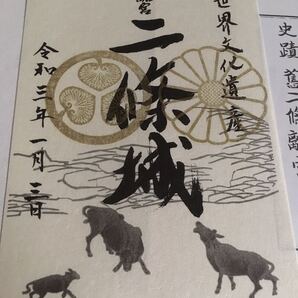 世界文化遺産
二條城
令和三年一月三日
史蹟 舊二條離